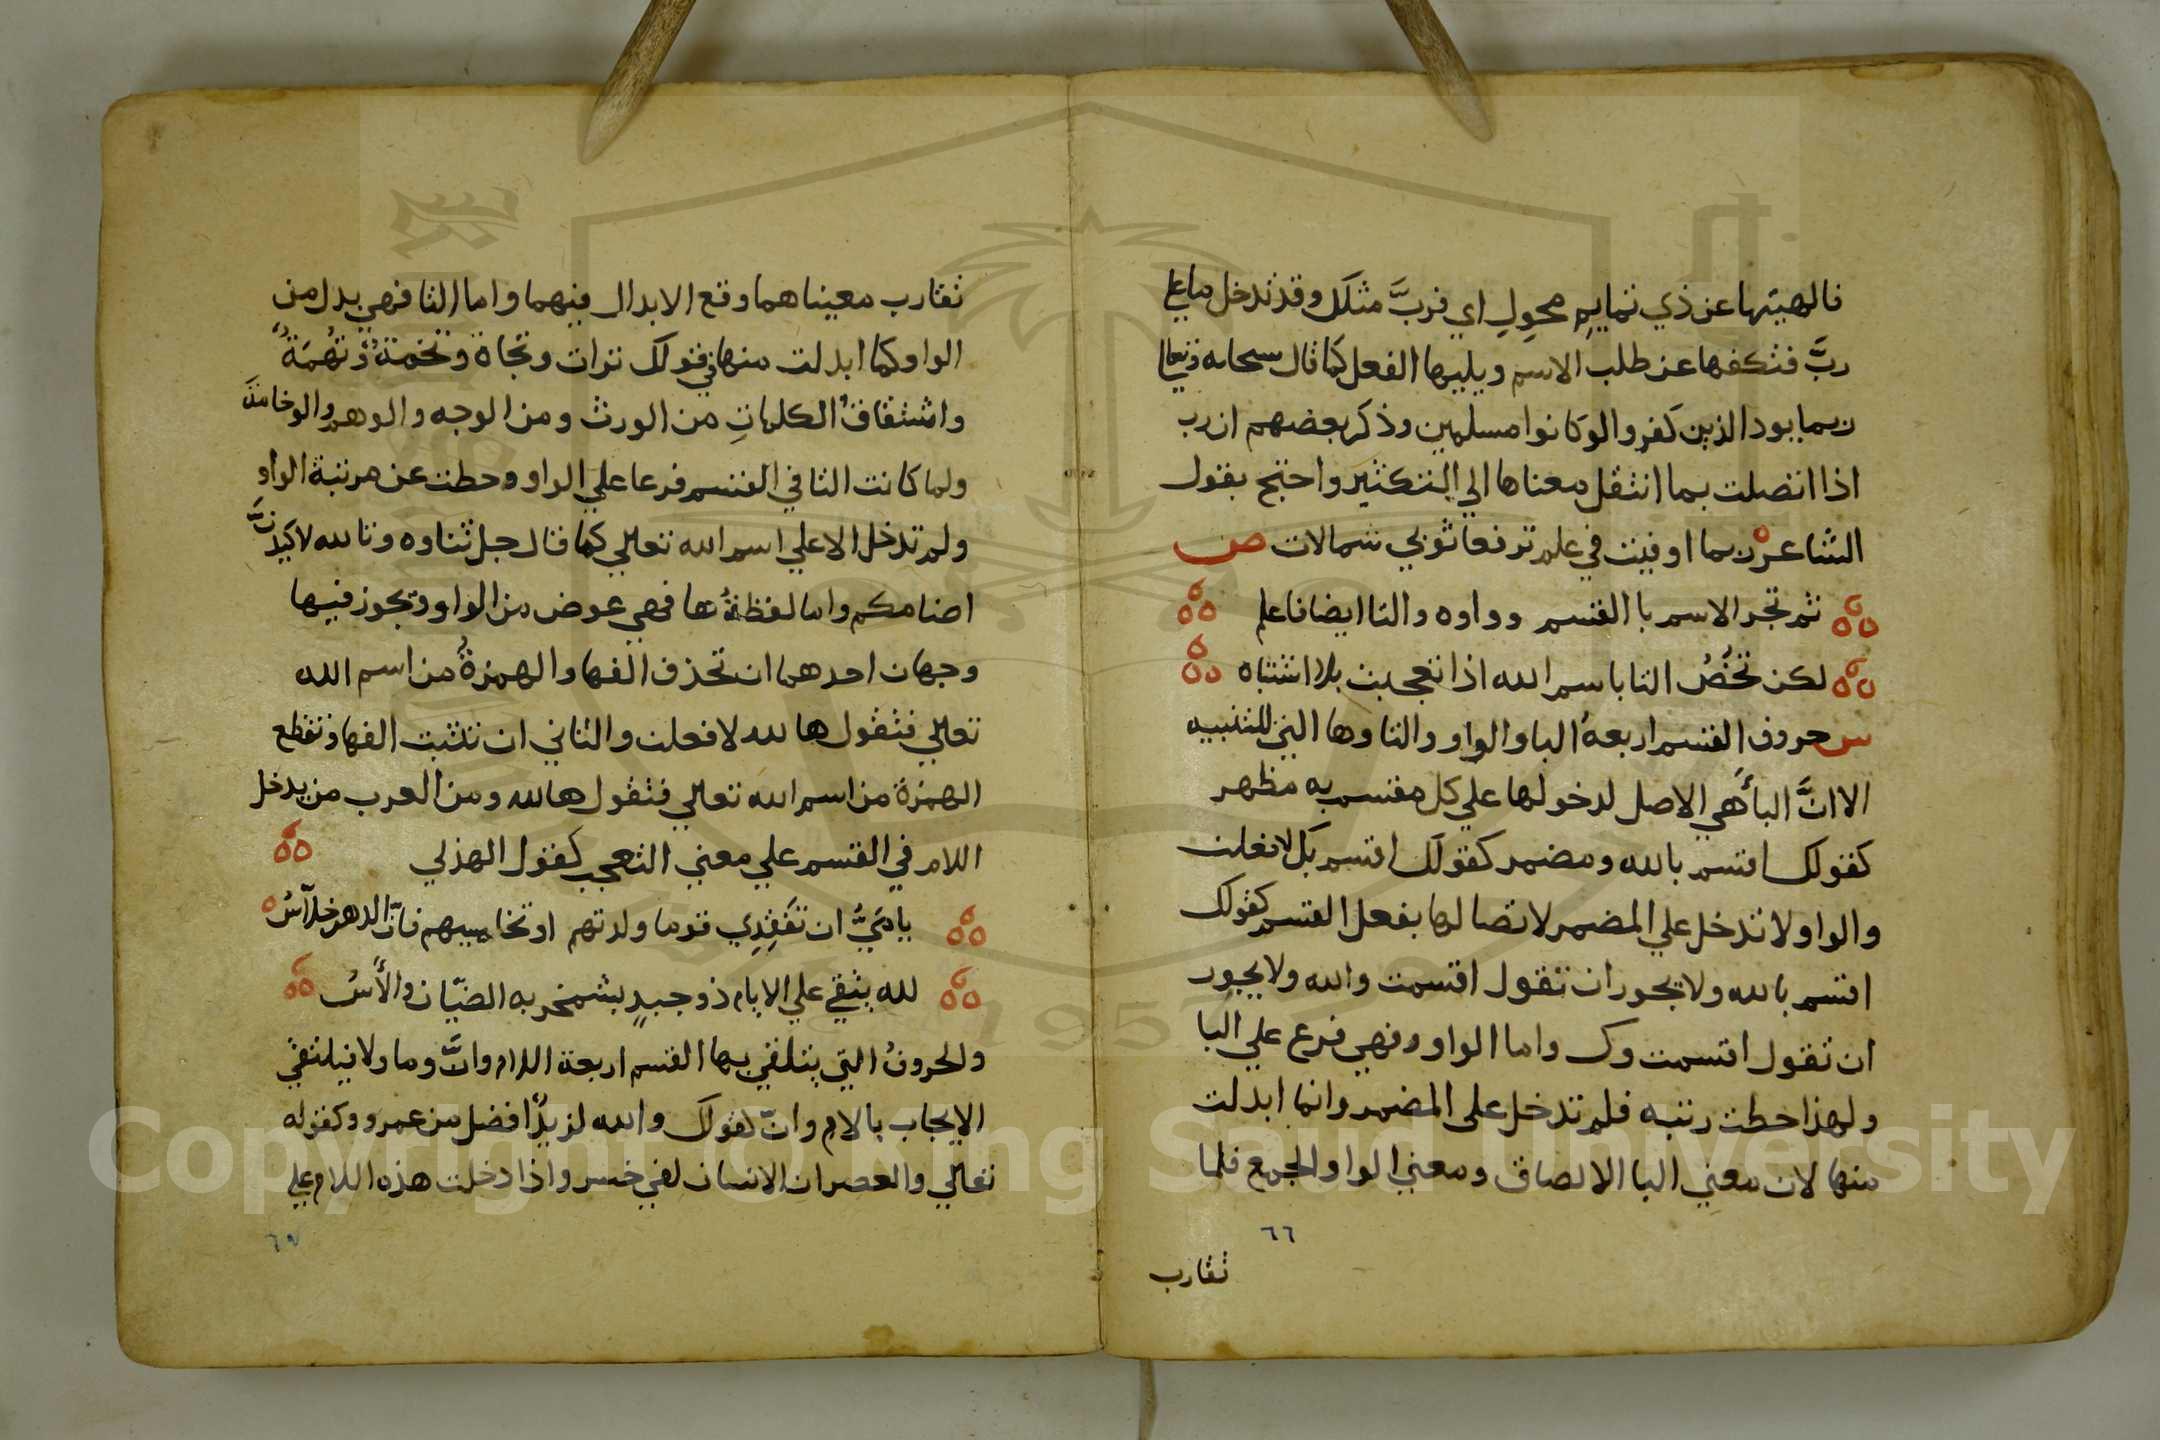 فالهيتها عن ذي تمايم محول اي فربَّ مثلك وقد تدخل ما علي
ربَّ فتكفها عن طلب الاسم ويليها الفعل كما قال سبحانه وتعالى
ربما يود الذين كفروا لوكانوا مسلمين وذكر بعضهم ان رب
اذا اتصلت بما انتقل معناها الي التكثير واحتج بقول
الشاعر ربما اوفيت في علم ترفعا ثوبي شمالات ص
ثم تجر الاسم با القسم وواوه والتا ايضا فاعلم
لكن تخصُ التا باسم الله اذا تعجبت بلا اشتباه
س حروف القسم اربعة البا والواو والتا وها التي للتنبيه
الا انَّ البأ هي الاصل لدخولها علي كل مقسم به مظهر
كقولك اقسم بالله ومضمر كقولك اقسم بك لافعلت
والواو لا تدخل علي المضمر لا تصالها بفعل القسم كقولك
اقسم بالله ولا يجوز ان تقول اقسمت والله ولا يجوز
ان تقول اقسمت وك واما الواو وفهي فرع علي البا
ولهذا حطت رتبه فلم تدخل على المضمر وانما ابدلت
منها لان معني البا الالصاق ومعني الواو الجمع فلما
٦٦
تقارب
تقارب معيناهما وقع الابدال فيهما واما التا فهي بدل من
الواو كما ابدلت منها في قولك تراث وتجاة وتخمةٌ وتُهمَةٌ
واشتقاقُ الكلماتِ من الورث ومن الوجه والوهم والوخامة
ولما كانت التا في القسم فرعا علي الواو وحطت عن مرتبة الواو
ولم تدخل الا علي اسم الله تعالي كما قال جل ثناوه وتالله لاكيدنَّ
اصنامكم واما لفظةُ ها فهي عوض من الواو ويجوز فيها
وجهان احدهما ان تحذف الفها والهمزةُ من اسم الله
تعالي فتقول ها لله لا فعلت والثاني ان تثبت الفها وتقطع
الهمزة من اسم الله تعالي فتقول ها لله ومن العرب من يدخل
اللام في القسم علي معني التعجب كقول الهذلي
يا ميُّ ان تفقدي قوما ولدتهم او تخاسيهم فانّ الدهر خلاسُ
لله يبقي علي الايام ذو جيدٍ بشمخر به الضيّان والأسُ
والحروفُ التي يتلقي بها القسم اربعة اللام وانَّ وما ولا فيلتقي
الايجاب بالام وانّ كقولك والله لزيدٌ افضل من عمرو وكقوله
تعالي والعصر ان الانسان لفي خسر واذا دخلت هذه اللام علي
٦٧
Copyright © King Saud University
1957